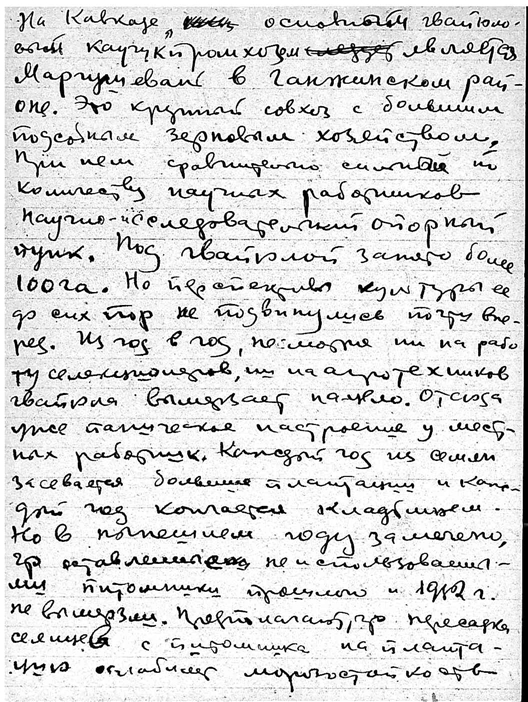 На Кавказе основным гваюло-
вым каучук промхозом является
Маргушеван в Ганжинском рай-
оне. Это крупный совхоз с большим
подсобным зерновым хозяйством.
При нем сравнительно сильный по
количеству научных работников
научно-исследовательский опорный
пунк. Под гвайюлой занято более
100 га. Но перспективы культуры ее
до сих пор не подвинулись почти впе-
ред. Из год в год, несмотря ни на рабо
ту селекционеров, ни на агротехников
гваюла вымерзает наголо. Отсюда
уже паническое настроение у мест-
ных работник. Каждый год из семян
засевается большие плантации и каж-
дый год кончается кладбищем.
Но в нынешнем году замечено,
что оставленные неиспользованны-
ми питомники прошлого и 1932 г.
не вымерзли. Предполагают, что пересадка
сеянцев с питомника на планта-
цию ослабляет морозостойкость